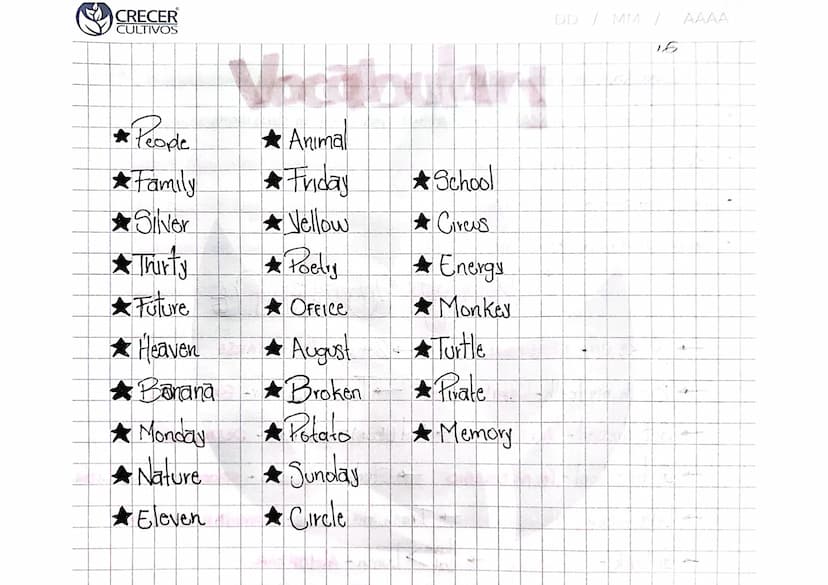 CRECER
CULTIVOS
DD / MM / AAAA
Vocabulary
★ People
★ Family
★ Silver
★ Thirty
★ Future
★ Heaven
★ Banana
★ Monday
★ Nature
★ Eleven
★ Animal
★ Friday
★ Yellow
★ Poetry
★ Office
★ August
★ Broken
★ Potato
★ Sunday
★ Circle
★ School
★ Circus
★ Energy
★ Monkey
★ Turtle
★ Pirate
★ Memory